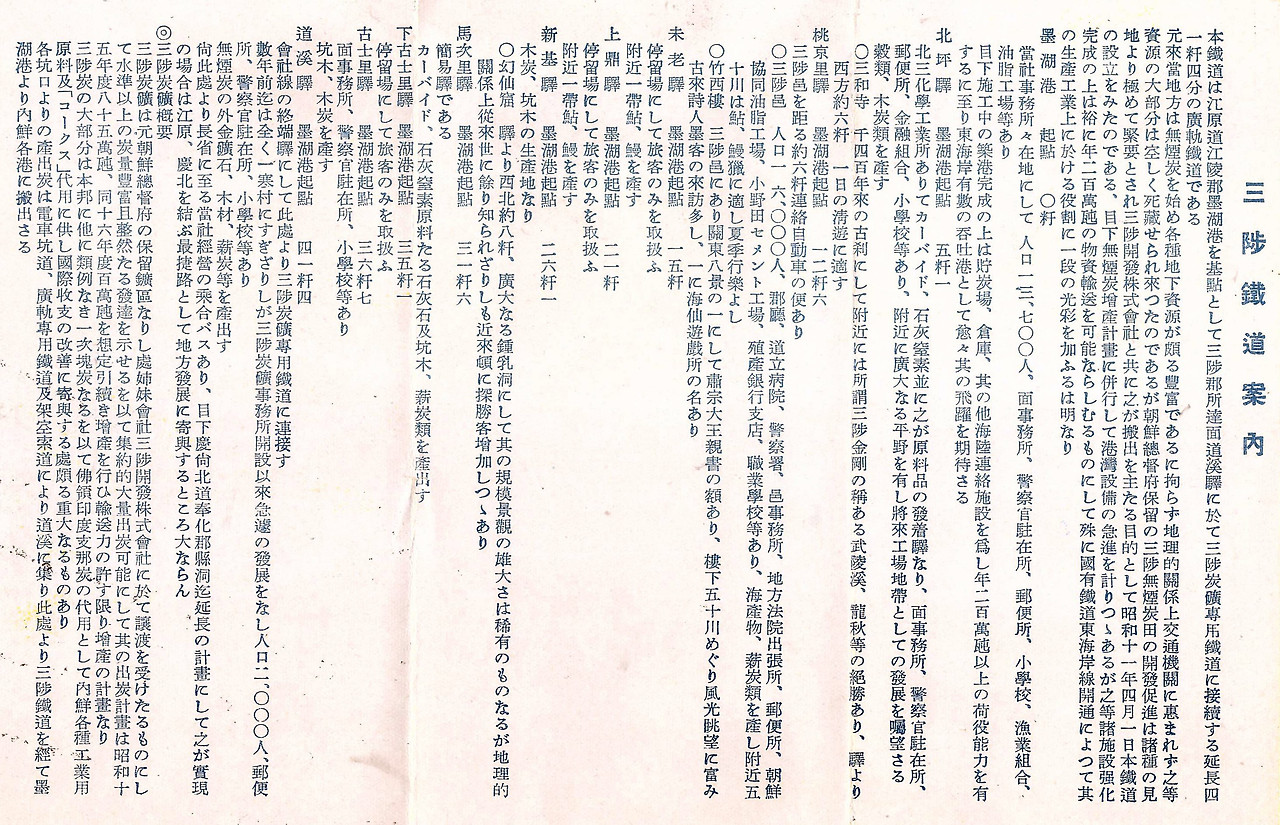 三陟鐵道案內
本鐵道は江原道江陵郡墨湖港を基點として三陟郡所達面道溪驛に於て三陟炭礦專用鐵道に接続する延長四
一粁四分の廣軌鐵道である
元來當地方は無煙炭を始め各種地下資源が頗る豊富であるに拘らず地理的關係上交通機關に惠まれず之等
資源の大部分は空しく死藏せられ來つたのであるが朝鮮總督府保留の三陟無煙炭田の開發促進は諸種の見
地より極めて緊要とされ三陟開發株式會社と共に之が搬出を主たる目的として昭和十一年四月一日本鐵道
の設立をみたのである、目下無煙炭增產計畫に併行して港灣設備の急進を計りつゝあるが之等諸施設强化
完成の上は裕に年二百萬瓲の物資輸送を可能ならしむるものにして殊に國有鐵道東海岸線開通によつて其
の生產工業上に於ける役割に一段の光彩を加ふるは明なり
墨湖港 起點 〇粁
當社事務所々在地にして 人口一三、七〇〇人、面事務所、警察官駐在所、郵便所、小學校、漁業組合、
油脂工場等あり
目下施工中の築港完成の上は貯炭場、倉庫、其の他海陸連絡施設を爲し年二百萬瓲以上の荷役能力を有
するに至り東海岸有數の吞吐港として愈々其の飛躍を期待さる
北坪驛 墨湖港起點 五粁一
北三化學工業所ありてカーバイド、石灰窒素並に之が原料品の發着驛なり、面事務所、警察官駐在所、
郵便所、金融組合、小學校等あり、附近に廣大なる平野を有し將來工場地帶としての發展を囑望さる
穀類、木炭類を產す
〇三和寺 千四百年來の古刹にして附近には所謂三陟金剛の稱ある武陵溪、龍秋等の絕勝あり、驛より
西方約六粁 一日の清遊に適す
桃京里驛 墨湖港起點 一二粁六
三陟邑を距る約六粁連絡自動車の便あり
〇三陟邑 人口一六、〇〇〇人、郡廳、道立病院、警察署、邑事務所、地方法院出張所、郵便所、朝鮮
協同油脂工場、小野田セメント工場、殖產銀行支店、職業學校等あり、海產物、薪炭類を產し附近五
十川は鮎、鰻獵に適し夏季行樂よし
〇竹西樓 三陟邑にあり關東八景の一にして肅宗大王親書の額あり、樓下五十川めぐり風光眺望に富み
古來詩人墨客の來訪多し、一に海仙遊戲所の名あり
未老驛 墨湖港起點 一五粁
停留場にして旅客のみを取扱ふ
附近一帶鮎、鰻を產す
上鼎驛 墨湖港起點 二一粁
停留場にして旅客のみを取扱ふ
附近一帶鮎、鰻を產す
新基驛 墨湖港起點 二六粁一
木炭、坑木の生產地なり
〇幻仙窟 驛より西北約八粁、廣大なる鍾乳洞にして其の規模景觀の雄大さは稀有のものなるが地理的
關係上從來世に餘り知られざりしも近來頓に探勝客增加しつゝあり
馬次里驛 墨湖港起點 三一粁六
簡易驛である
カーバイド、石灰窒素原料たる石灰石及坑木、薪炭類を產出す
下古士里驛 墨湖港起點 三五粁一
停留場にして旅客のみを取扱ふ
古士里驛 墨湖港起點 三六粁七
面事務所、警察官駐在所、小學校等あり
坑木、木炭を產す
道溪驛 墨湖港起點 四一粁四
會社線の終端驛にして此處より三陟炭礦專用鐵道に連接す
數年前迄は全く一寒村にすぎざりしが三陟炭礦事務所開設以來急遽の發展をなし人口二、〇〇〇人、郵便
所、警察官駐在所、小學校等あり
無煙炭の外金鑛石、木材、薪炭等を產出す
尙此處より長省に至る當社經營の乘合バスあり、目下慶尙北道奉化郡縣洞迄延長の計畫にして之が實現
の場合は江原、慶北を結ぶ最捷路として地方發展に寄與するところ大ならん
◎三陟炭礦概要
三陟炭礦は元朝鮮總督府の保留鑛區なりし處姉妹會社三陟開發株式會社に於て讓渡を受けたるものにし
て水準以上の炭量豐富且整然たる發達を示せるを以て集約的大量出炭可能にして其の出炭計畫は昭和十
五年度八十五萬瓲、同十六年度百萬瓲を想定引續き增產を行ひ輸送力の許す限り增產の計畫なり
三陟炭の大部分は本邦に他に類例なき一次塊炭なるを以て佛領印度支那炭の代用として內鮮各種工業用
原料及「コークス」代用に供し國際收支の改善に寄與する處頗る重大なるものあり
各坑口よりの產出炭は電車坑道、廣軌專用鐵道及架空索道により道溪に集り此處より三陟鐵道を經て墨
湖港より內鮮各港に搬出さる